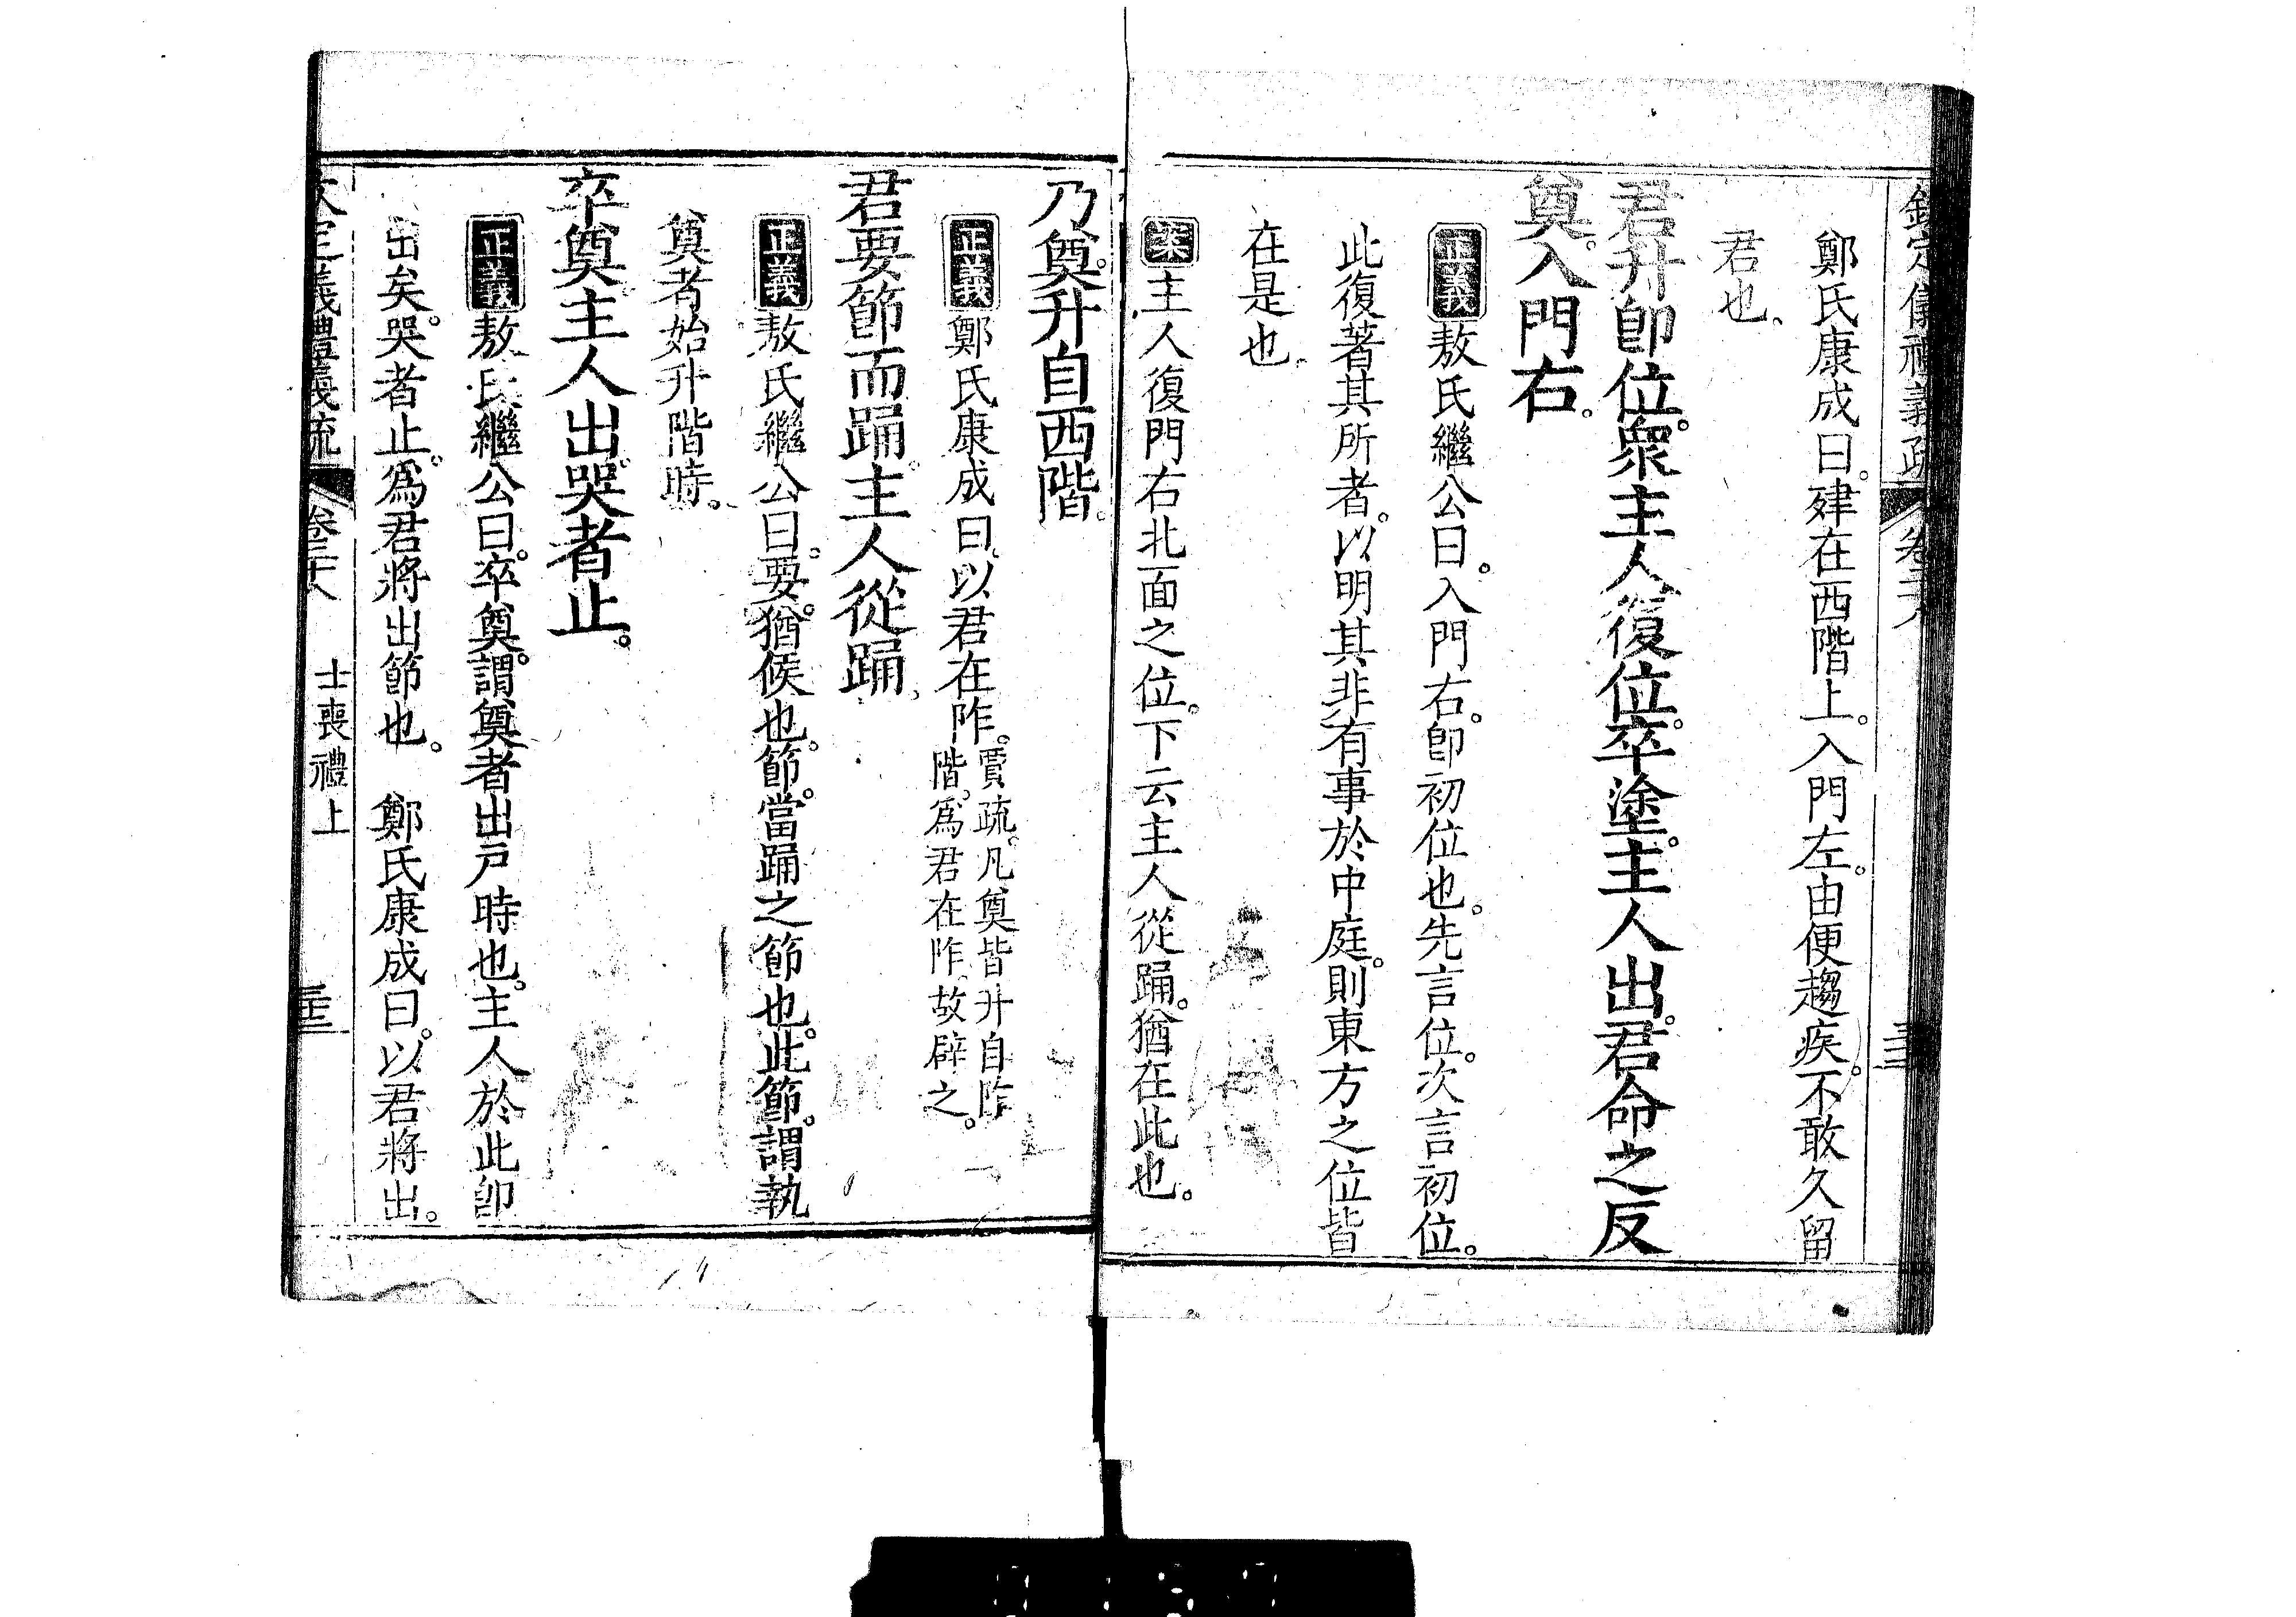 欽定儀禮義疏 卷二十八 三十三
鄭氏康成曰。肂在西階上。入門左。由便趨疾。不敢久留
君也。
君升卽位。衆主人復位。卒塗。主人出。君命之反
奠。入門右。
正義敖氏繼公曰。入門右。卽初位也。先言位。次言初位。
此復著其所者。以明其非有事於中庭。則東方之位皆
在是也。
案主人復門右北面之位。下云主人從踊。猶在此也。
乃奠。升自西階。
正義鄭氏康成曰。以君在阼。賈疏。凡奠皆升自阼
階。爲君在阼。故辟之。
君要節而踊。主人從踊。
正義敖氏繼公曰。要。猶候也。節。當踊之節也。此節。謂執
奠者始升階時。
卒奠。主人出。哭者止。
正義敖氏繼公曰。卒奠。謂奠者出戶時也。主人於此卽
出矣。哭者止。爲君將出節也。 鄭氏康成曰。以君將出。
欽定義禮義疏 卷二十八 士喪禮上 三十三